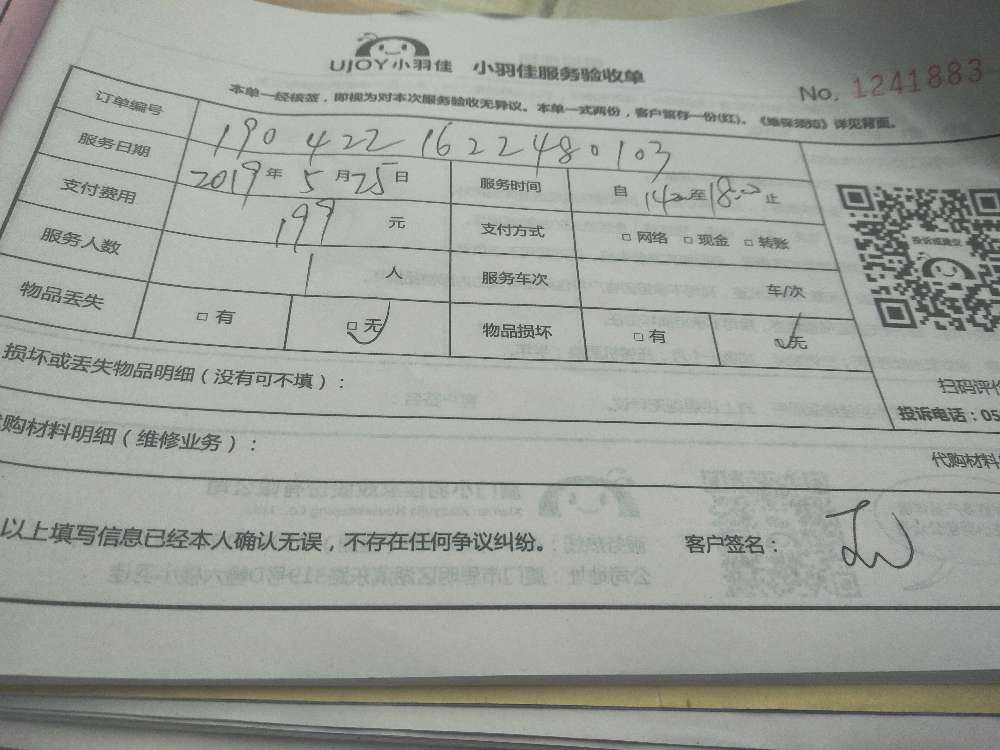 UJOY小羽佳 小羽佳服务验收单
No. 1241883
本单一经核签，即视为对本次服务验收无异议。本单一式两份，客户留存一份(红)。《维保须知》详见背面。
订单编号 1904221622480103
服务日期 2019年5月25日 服务时间 自 14:00至18:00止
支付费用 199 元 支付方式 □ 网络 □ 现金 □ 转账
服务人数 1 人 服务车次 车/次
投诉或建议
物品丢失 □ 有 □ 无 物品损坏 □ 有 □ 无
损坏或丢失物品明细（没有可不填）：
扫码评价
投诉电话：05
购材料明细（维修业务）：
代购材料
以上填写信息已经本人确认无误，不存在任何争议纠纷。 客户签名：